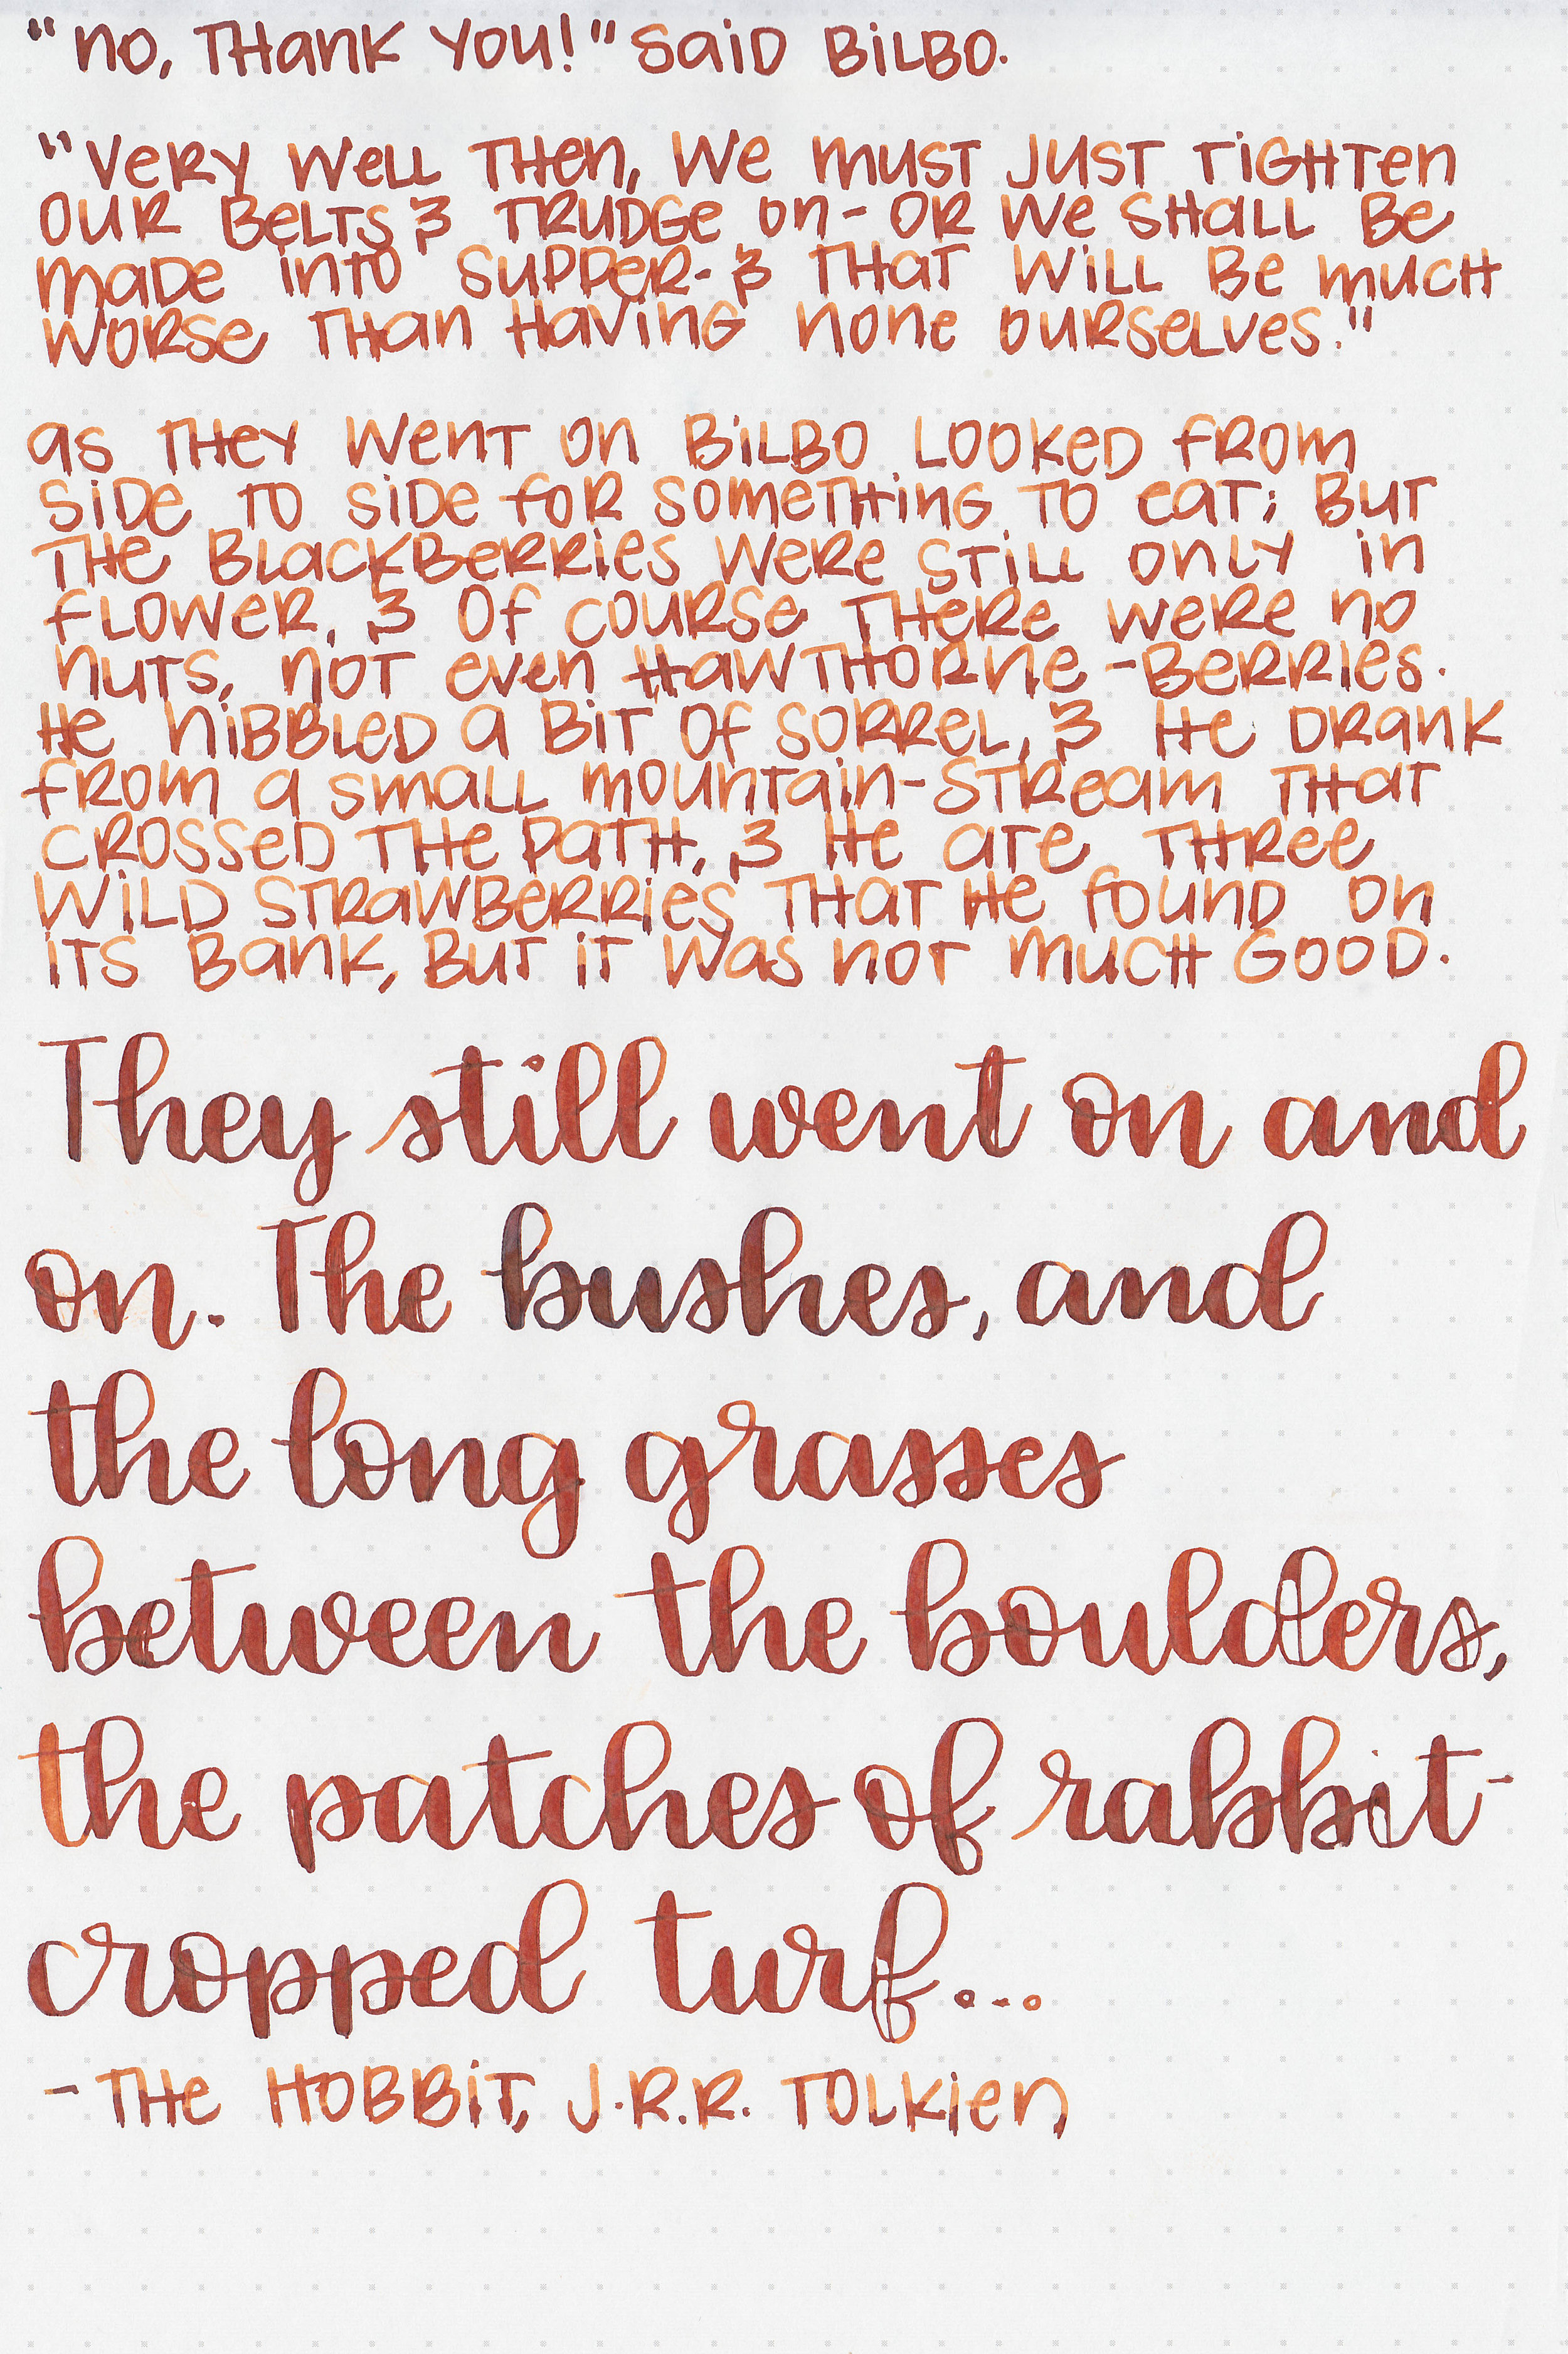 "no, THank You!" said BiLBO.
"Very Well THen, We must just TiGHTen
OUR BeLTS & TRUDGe on - OR We SHaLL Be
maDe inTO SUPPeR - & THaT WiLL Be mucH
WORSe THan HavinG none OURSeLVes."
as THey WenT on BiLBO LOOKeD fROm
SiDe TO SiDe fOR SOmeTHinG TO eaT; BuT
THe BLackBeRRies WeRe STiLL onLy in
fLOWeR, & Of COURSe THeRe WeRe no
nuTS, noT even HaWTHORne-BeRRies.
He niBBLeD a BiT Of SORReL, & He DRank
fROm a smaLL mounTain-STReam THaT
CROSSeD THe PaTH, & He aTe THRee
WiLD STRaWBeRRies THaT He founD on
iTS Bank, BuT iT Was noT mucH GOOD.
They still went on and
on. The bushes, and
the long grasses
between the boulders,
the patches of rabbit-
cropped turf...
- THe HOBBiT, J.R.R. TOLkien